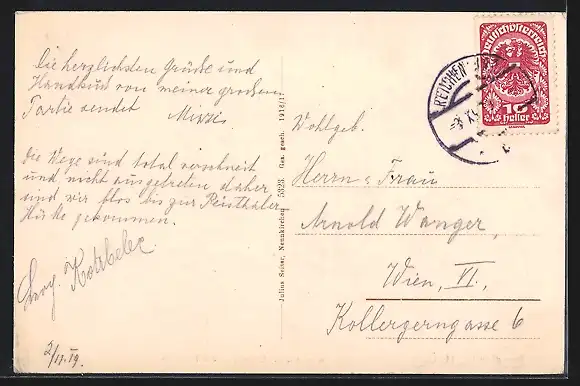 Die herzlichsten Grüße und
Handkuß von meiner großen
Partie sendet
Mizzi
Die Wege sind total verschneit
und nicht ausgetreten daher
sind wir blos bis zur Peisthaler
Hütte gekommen.
2/11. 19.
Julius Seiser, Neunkirchen 5323 Ges. gesch. 1916/17
Deutschösterreich
10
Heller
REICHEN
Wohlgeb.
Herrn u Frau
Arnold Wanger,
Wien, VI.,
Kollergerngasse 6